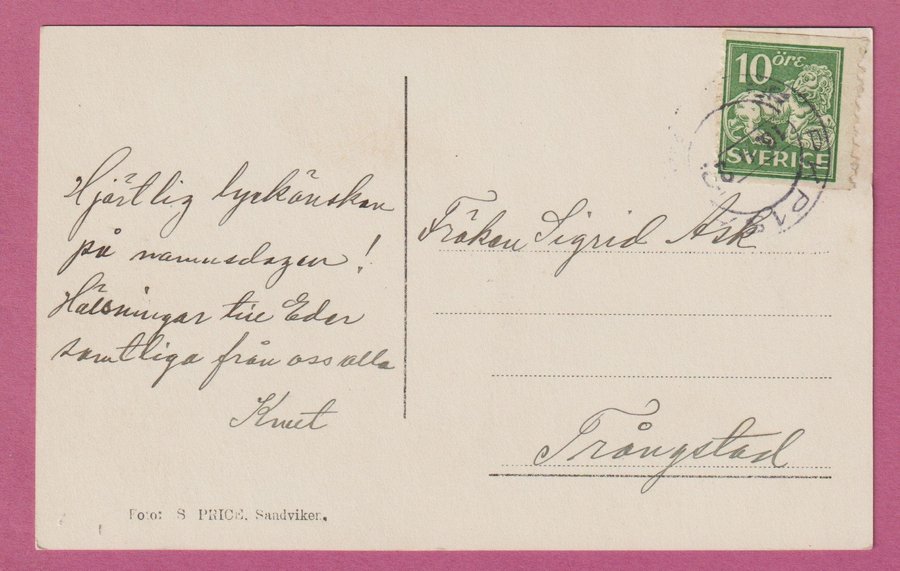 10 öre
SVERIGE
PKP
Hjärtlig lyckönskan
på namnsdagen!
Hälsningar till Eder
samtliga från oss alla
Knut
Fröken Sigrid Ask
Trångstad
Foto: S. PRICE, Sandviken.